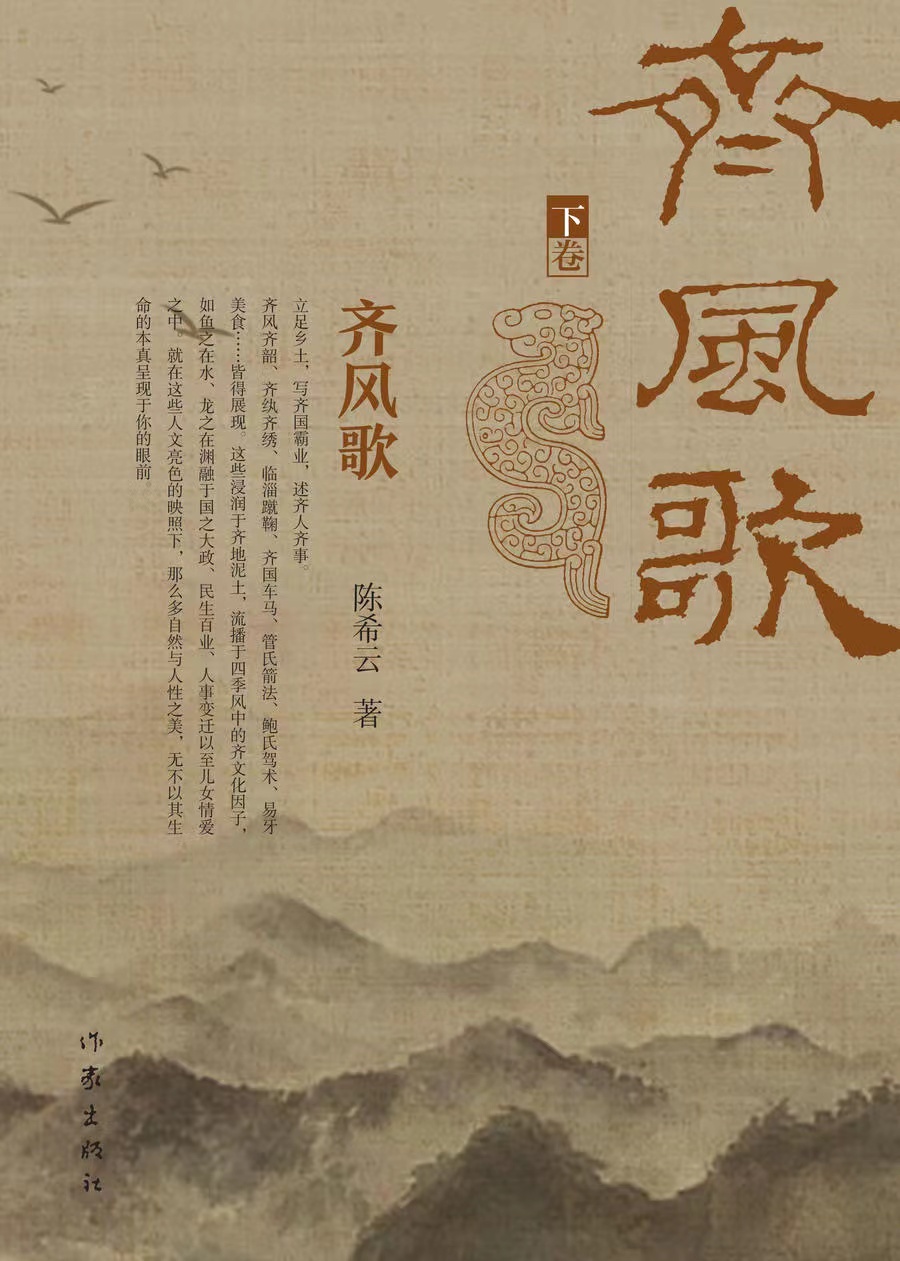 齊風歌
下卷
齐风歌
陈希云 著
立足乡土，写齐国霸业，述齐人齐事。
齐风齐韶、齐纨齐绣、临淄蹴鞠、齐国车马、管氏箭法、鲍氏驾术、易牙
美食……皆得展现。这些浸润于齐地泥土，流播于四季风中的齐文化因子，
如鱼之在水、龙之在渊融于国之大政、民生百业、人事变迁以至儿女情爱
之中。就在这些人文亮色的映照下，那么多自然与人性之美，无不以其生
命的本真呈现于你的眼前。
作家出版社